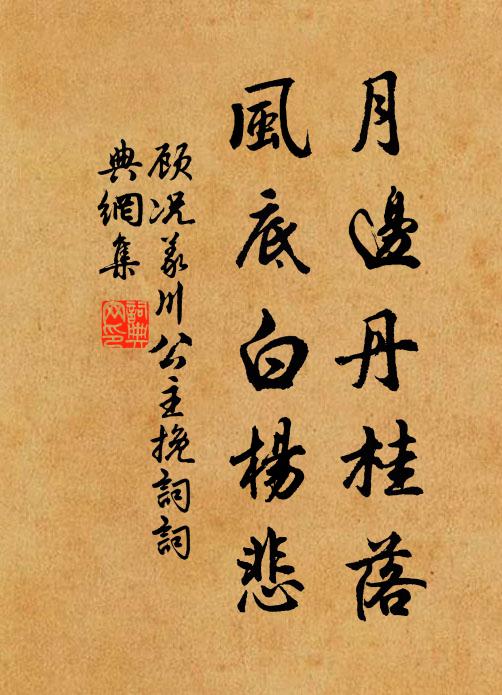 月邊丹桂落
風底白楊悲
顾况義川公主挽詞詞
典網集
詞典
网印